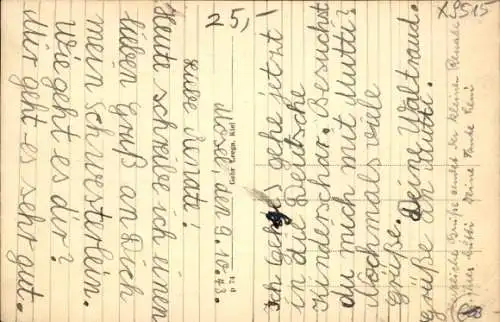 Mosel, den 9.10.43.
Liebe Renate!
Heute schreibe ich einen
lieben Gruß an Dich
mein Schwesterlein.
Wie geht es dir?
Mir geht es sehr gut.
Ich gehe jetzt
in die Deutsche
Kinderschar. Besuchst
du mich mit Mutti?
Nochmals viele
Grüße. Deine Waltraud.
Grüße an Mutti.
Grüße sendet der kleinen Renate
Mutti
P 74
Gebr Kiel
25,-
X0515